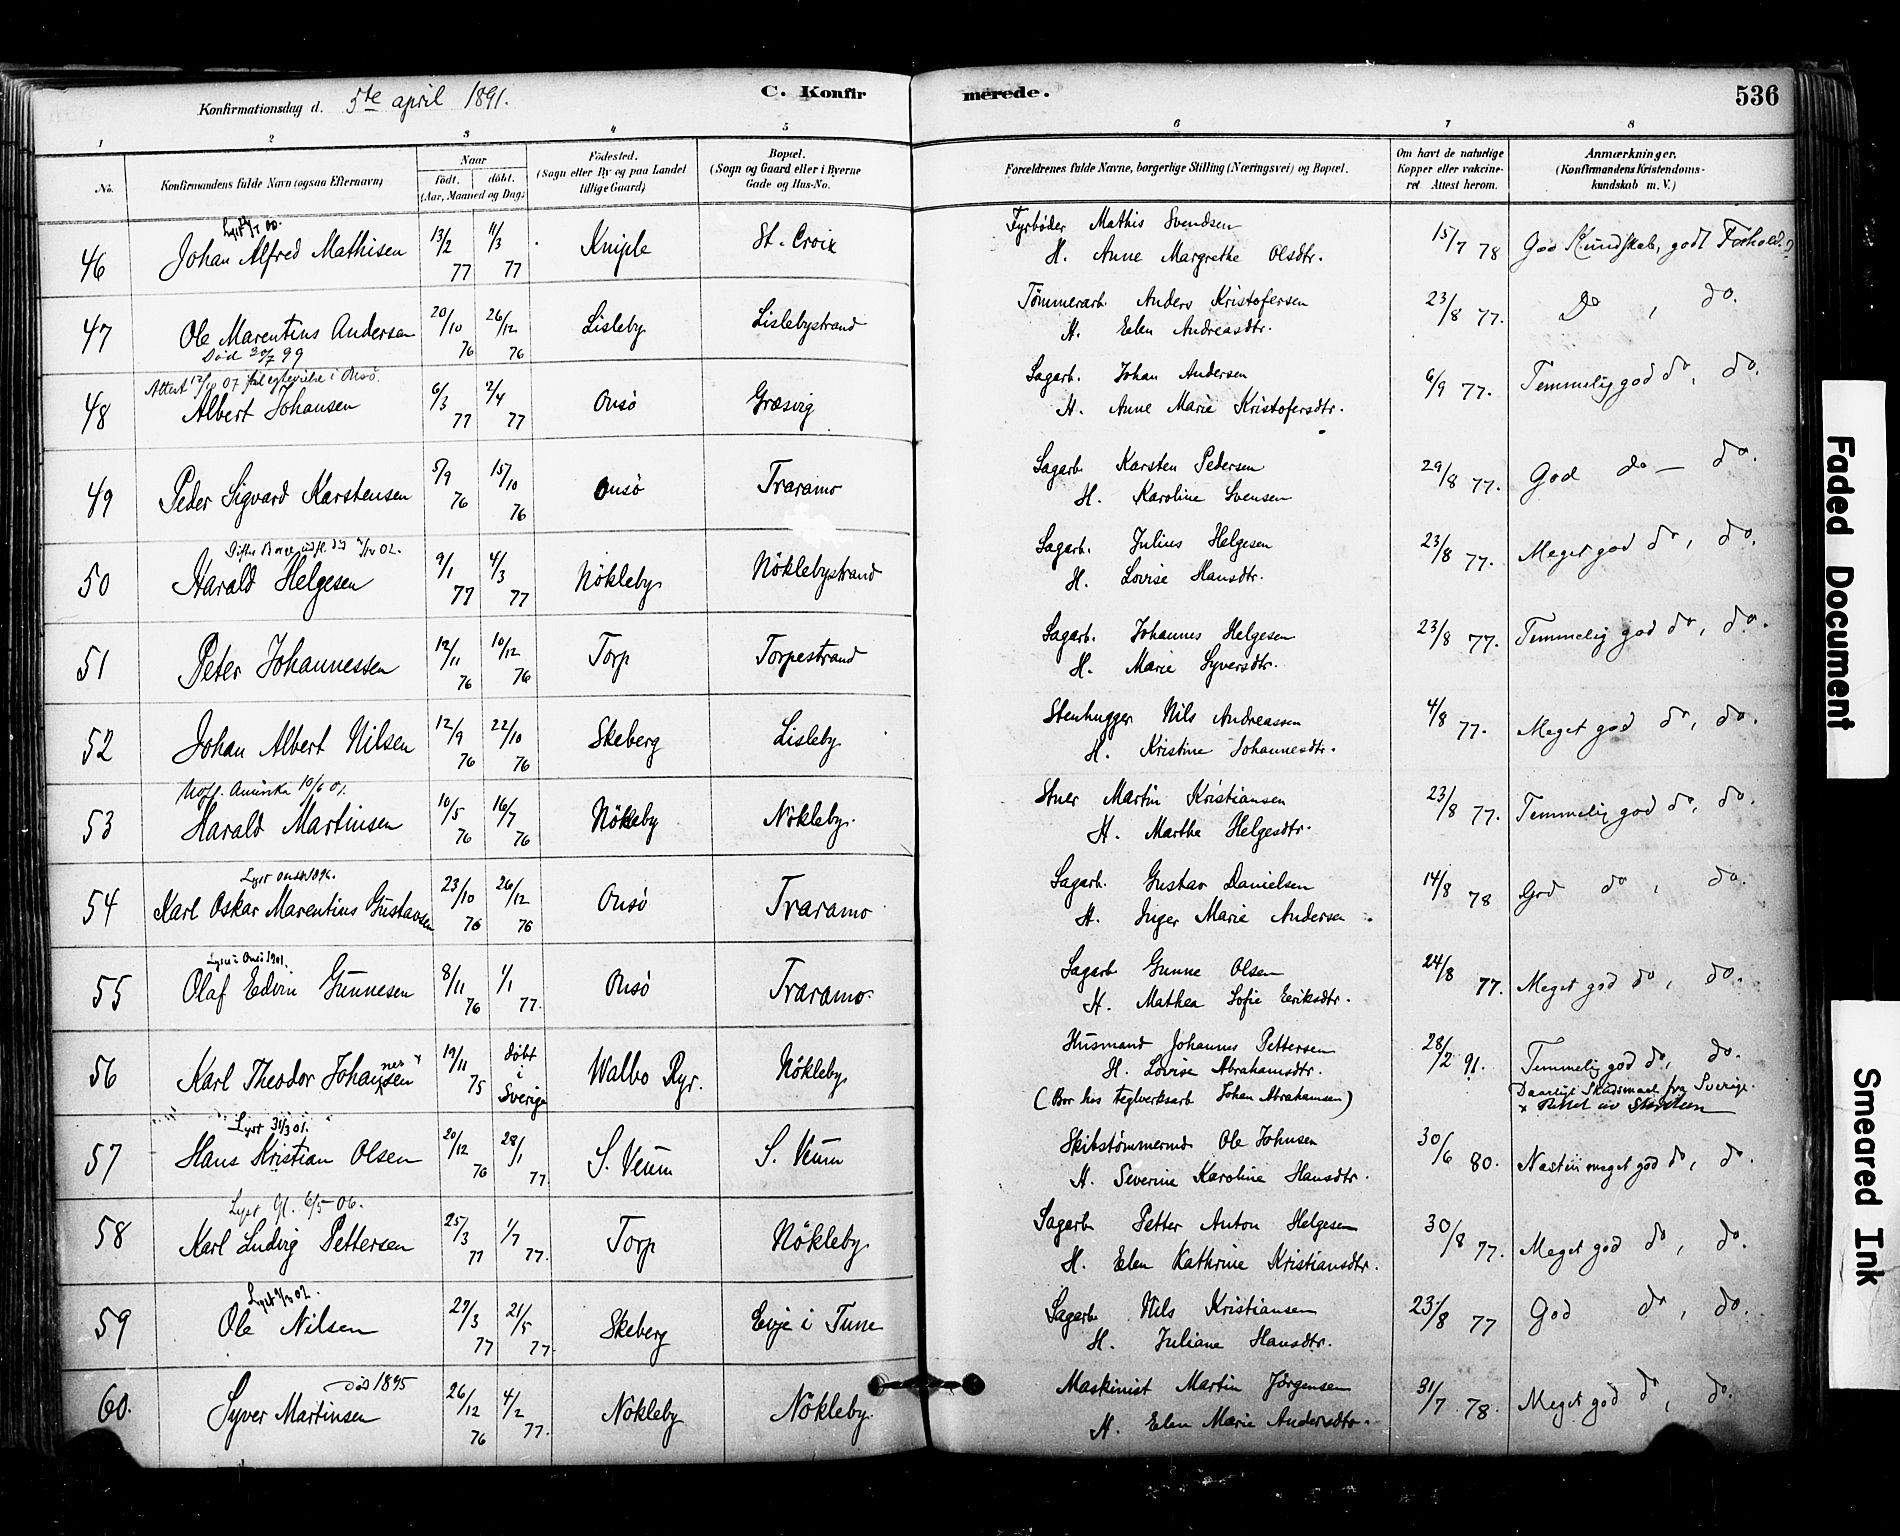 Konfirmationsdag d. 5te april 1891.
C. Konfir
merede.
536
1 2 3 4 5 6 7 8
No. Konfirmandens fulde Navn (ogsaa Efternavn)
Naar
født. døbt.
(Aar, Maaned og Dag)
Fødested.
(Sogn eller By og paa Landet
tillige Gaard)
Bopæl.
(Sogn og Gaard eller i Byerne
Gade og Hus-No.
Forældrenes fulde Navne, borgerlige Stilling (Næringsvei) og Bopæl.
Om havt de naturlige
Kopper eller vaccine-
ret Attest herom.
Anmærkninger.
(Konfirmandens Kristendoms-
kundskab m. V.)
46 Johan Alfred Mathisen 13/2 77 11/3 77 Kniple St. Croix Fyrbøder Mathis Svendsen 15/7 78 God Kundskab, godt Forhold.
H. Anne Margrethe Olsdtr.
47 Ole Marentius Andersen 20/10 76 26/12 76 Lisleby Lislebystrand Tømmerarb. Anders Kristofersen 23/8 77. Do , do.
H. Elen Andreasdtr.
Død 30/7 99
Attest 12/10 07 til egtevielse i Onsø.
48 Albert Johansen 6/3 77 2/4 77 Onsø Græsvig Sagarb. Johan Andersen 6/9 77. Temmelig god do, do.
H. Anne Marie Kristofersdtr.
49 Peder Sigvard Karstensen 5/9 76 15/10 76 Onsø Traramo Sagarb. Karsten Pedersen 29/8 77. God do — do.
H. Karoline Svensen
50 Harald Helgesen 9/1 77 4/3 77 Nökleby Nöklebystrand Sagarb. Julius Helgesen 23/8 77. Meget god do, do.
H. Lovise Hansdtr.
51 Peter Johannessen 12/11 76 10/12 76 Torp Torpestrand Sagarb. Johannes Helgesen 23/8 77. Temmelig god do, do.
H. Marie Syversdtr.
52 Johan Albert Nilsen 12/9 76 22/10 76 Skeberg Lisleby Stenhugger Nils Andreassen 4/8 77. Meget god do, do.
H. Kristine Johannesdtr.
Amerika 10/6 01.
53 Harald Martinsen 10/5 76 16/7 76 Nökleby Nökleby. Stuer Martin Kristiansen 23/8 77. Temmelig god do, do.
H. Marthe Helgesdtr.
54 Karl Oskar Marentius Gustavsen 23/10 76 26/12 76 Onsø Traramo Sagarb. Gustav Danielsen 14/8 78 God do , do.
H. Inger Marie Andersen
Lyst i Onsø 1901.
55 Olaf Edvin Gunnesen 8/11 76 1/1 77. Onsø Traramo. Sagarb Gunne Olsen 24/8 77. Meget god do, do.
H. Mathea Sofie Eriksdtr.
56 Karl Theodor Johannesen 19/11 75 døbt i Sverige Walbo Ryr. Nökleby Husmand Johannes Pettersen 28/2 91. Temmelig god do, do.
H. Lovise Abrahamsdtr.
(Bor hos teglverksarb Johan Abrahamsen)
Daarligt Skudsmaal fra Sverige.
Lyst 31/3 01.
57 Hans Kristian Olsen 20/12 76 28/1 77. S. Veum S. Veum Skibstömmermd Ole Johnsen 30/6 80. Næsten meget god do, do.
H. Severine Karoline Hansdtr.
Lyst Gl. 6/5 06.
58 Karl Ludvig Pettersen 25/3 77 1/7 77. Torp Nökleby Sagarb Petter Anton Helgesen 30/8 77. Meget god do, do.
H. Elen Kathrine Kristiansdtr.
59 Ole Nilsen 27/3 77 21/5 77. Skeberg Evje i Tune Sagarb Nils Kristiansen 23/8 77 God do, do.
H. Juliane Hansdtr.
Död 1895
60. Syver Martinsen 26/12 76 4/2 77. Nökleby Nökleby. Maskinist Martin Jörgensen 31/7 78. Meget god do, do.
H. Elen Marie Andersdtr.
Faded Document
Smeared Ink